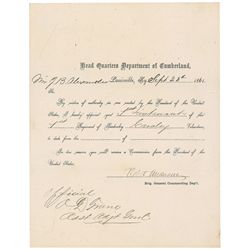 Head Quarters Department of Cumberland,
Louisville, Ky Sept 23d 1861.
Sir
By virtue of authority in me vested by the President of the United
States, I hereby appoint you 1st Lieutenant of the
1st Regiment of Kentucky Cavalry Volunteers,
to date from the
In due season you will receive a Commission from the President of the
United States.
Robert Anderson
Brig General Commanding Dep't.
Official
O. D. Greene
Asst Adjt Genl